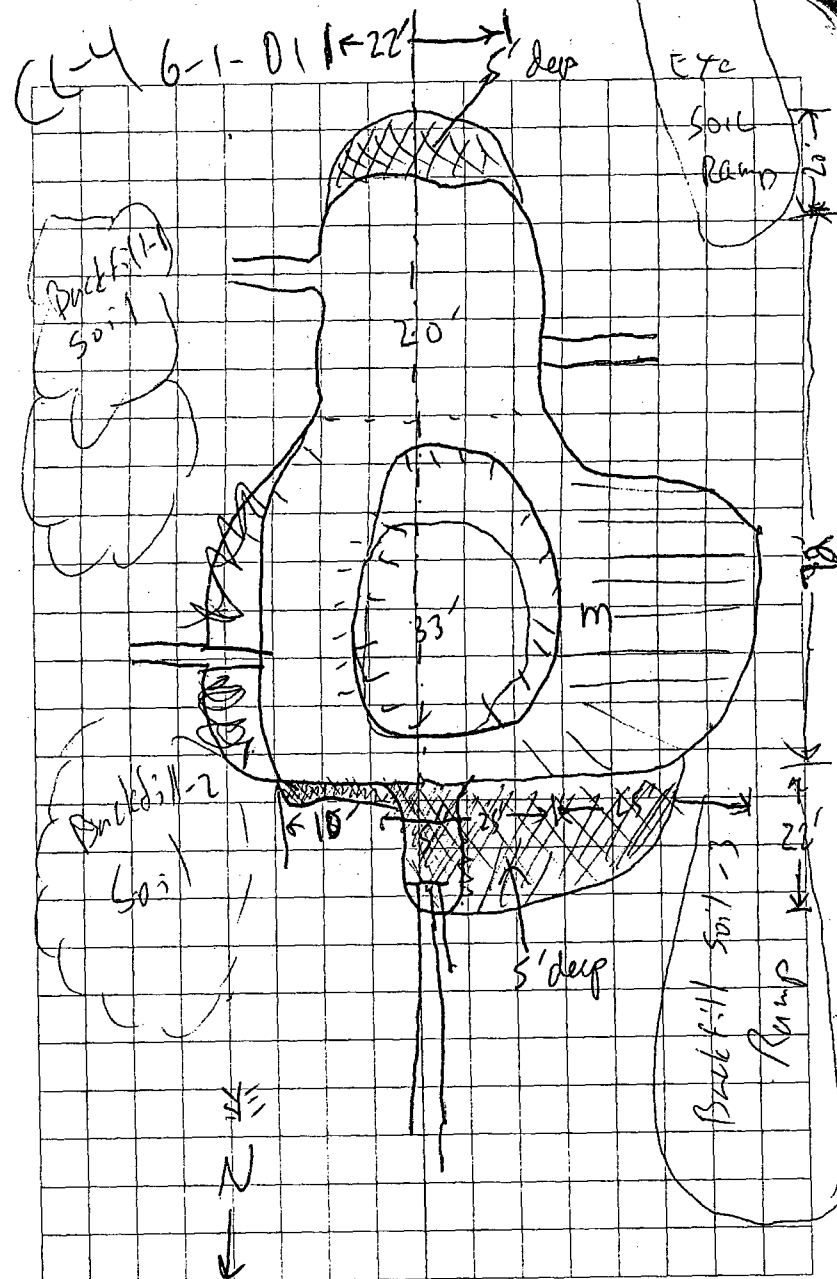 CL-4 6-1-01 22'
5' deep
ETC
Soil
Ramp
20'
Backfill-1
Soil
20'
98'
33'
m
Backfill-2
Soil
10'
25'
25'
22'
5' deep
Backfill Soil-3
Ramp
N